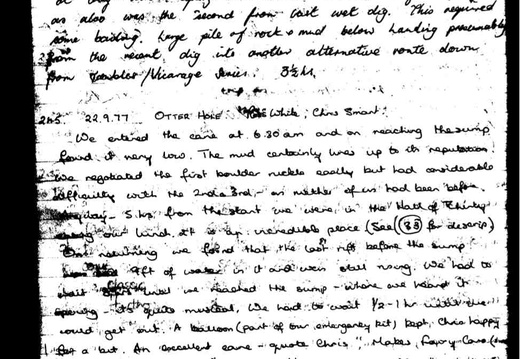 as also was the second from last wet dig. This required
some bailing. Large pile of rock & mud below landing presumably
from the recent dig into another alternative route down
from Rambles/Vicarage series. 3½ hrs.
22.9.77 OTTER HOLE. White, Chris Smart.
We entered the cave at 6.30 am and on reaching the sump
found it very low. The mud certainly lives up to its reputation.
We negotiated the first boulder ruckle easily but had considerable
difficulty with the 2nd & 3rd - as neither of us had been before.
Anyway - 5 hrs from the start we were in the Hall of Thirty
it is an incredible place (See 83 for descrip)
On returning we found that the last rift before the sump
9ft of water in it and was still rising. We had to
wait until we reached the sump - where we heard it
opening - its quite musical. We had to wait ½-1 hr until we
could get out. A balloon (part of our emergency kit) kept Chris happy
for a bit. An excellent cave - quote Chris "Makes